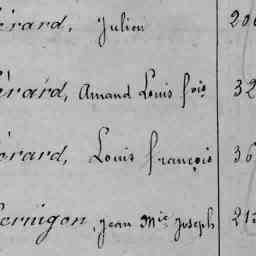 érard, Julien 20
érard, Amand Louis fçois 32
érard, Louis françois 36
ernigon, Jean Mie Joseph 213